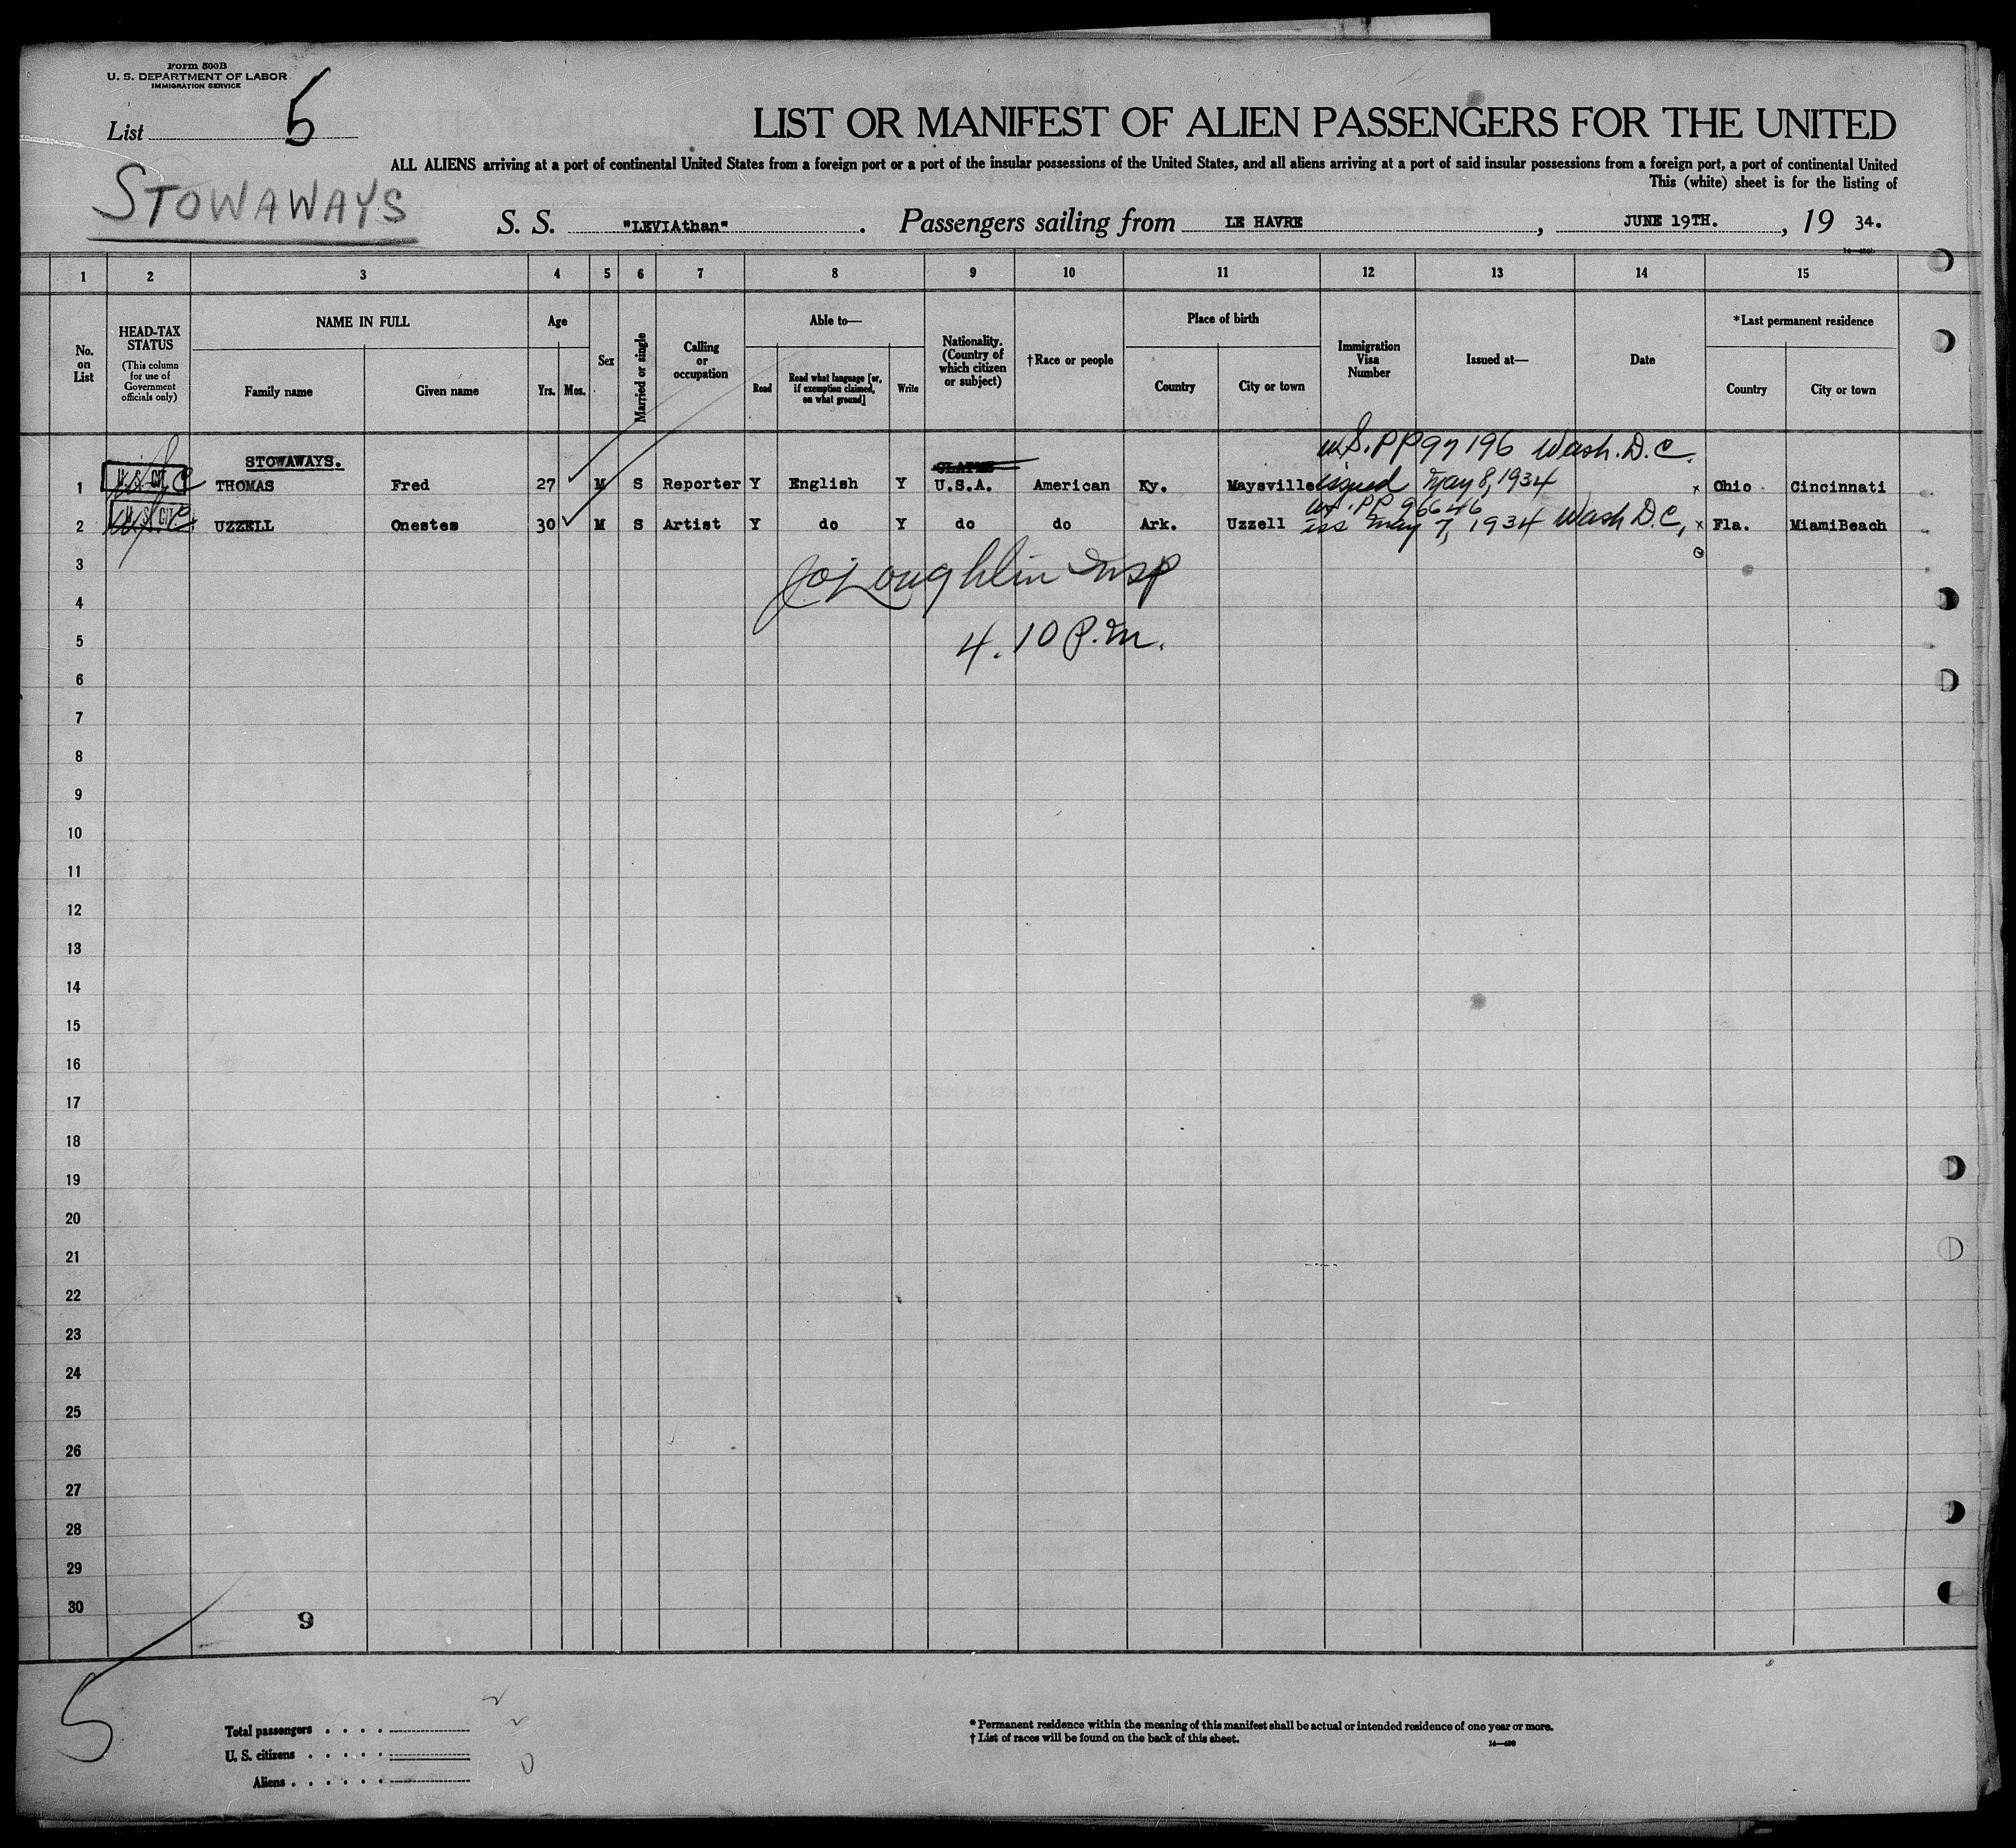 Form 500B
U. S. DEPARTMENT OF LABOR
IMMIGRATION SERVICE
List 5
LIST OR MANIFEST OF ALIEN PASSENGERS FOR THE UNITED
ALL ALIENS arriving at a port of continental United States from a foreign port or a port of the insular possessions of the United States, and all aliens arriving at a port of said insular possessions from a foreign port, a port of continental United
This (white) sheet is for the listing of
STOWAWAYS
S. S. "LEVIAthan". Passengers sailing from LE HAVRE, JUNE 19TH., 19 34.
1 2 3 4 5 6 7 8 9 10 11 12 13 14 15
No. on List
HEAD-TAX STATUS
(This column for use of Government officials only)
NAME IN FULL
Family name
Given name
Age
Yrs. Mos.
Sex
Married or single
Calling or occupation
Able to—
Read
Read what language [or, if exemption claimed, on what ground]
Write
Nationality. (Country of which citizen or subject)
†Race or people
Place of birth
Country
City or town
Immigration Visa Number
Issued at—
Date
*Last permanent residence
Country
City or town
U.S.PP97196 Wash. D.C.
STOWAWAYS. CLAIMS
1 U.S. CIT. THOMAS Fred 27 M S Reporter Y English Y U.S.A. American Ky. Maysville issued May 8, 1934 x Ohio Cincinnati
U.S. PP 96646
2 U.S. CIT. UZZELL Onestes 30 M S Artist Y do Y do do Ark. Uzzell iss May 7, 1934 Wash D.C., x Fla. MiamiBeach
3
JO'Loughlin Insp
4
5
4.10 P.m.
6
7
8
9
10
11
12
13
14
15
16
17
18
19
20
21
22
23
24
25
26
27
28
29
30
9
5
Total passengers . . . . 2
U. S. citizens . . . . . 2
Aliens . . . . . . 0
* Permanent residence within the meaning of this manifest shall be actual or intended residence of one year or more.
† List of races will be found on the back of this sheet.